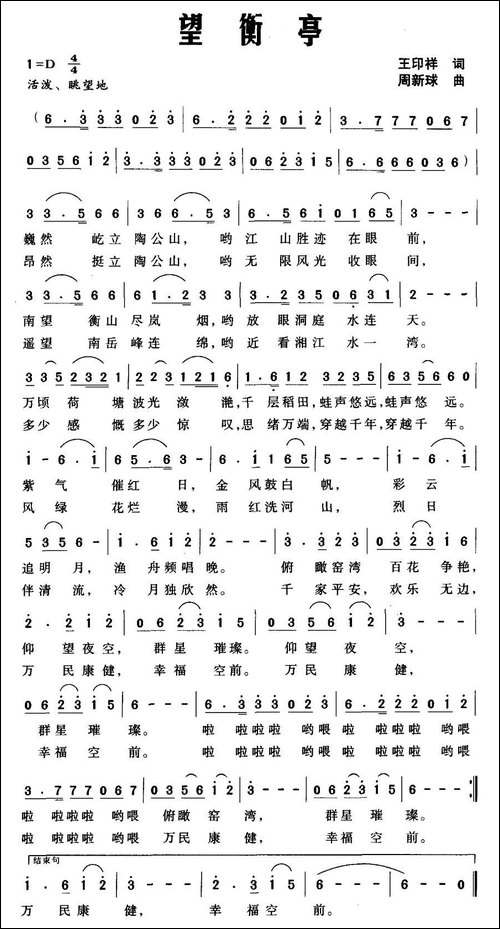 望衡亭
1=D 4/4
王印祥 词
活泼、眺望地
周新球 曲
(6.3 3 3 0 2 3 | 6.2 2 2 0 1 2 | 3.7 7 7 0 6 7 |
0 3 5 6 1 2 | 3.3 3 3 0 2 3 | 0 6 2 3 1 5 | 6.6 6 6 0 3 6) |
3 3.5 6 6 | 3 6 6.5 3 | 6.5 6 1 0 1 6 5 | 3 - - - |
巍然 屹立 陶公山, 哟 江 山胜迹 在眼 前,
昂然 挺立 陶公山, 哟 无 限风光 收眼 间,
3 3.5 6 6 | 6 1.2 3 3 | 3.2 3 5 0 6 3 1 | 2 - - - |
南望 衡山 尽岚 烟,哟 放 眼洞庭 水连 天。
遥望 南岳 峰连 绵,哟 近 看湘江 水一 湾。
3 3 5 2 3 2 1 | 2 2 3 1 2 1 6 | 1.6 1 2 3 2 3 5 | 6 3 5 6 6 0 |
万顷 荷 塘波光 潋 滟,千 层稻田,蛙声悠远,蛙声悠 远。
多少 感 慨多少 惊 叹,思 绪万端,穿越千年,穿越千 年。
1 - 6.1 | 6 5.6 3 - | 2 3 5 6 1 - | 1 - 6.1 |
紫 气 催红 日, 金 风鼓白 帆, 彩 云
风 绿 花烂 漫, 雨 红洗河 山, 烈 日
5 3 5 6 - | 2.1 6 1 2 | 2 - - - | 3.3 2 3 | 0 3 2 3 1 6 |
追明 月, 渔 舟频唱 晚。 俯 瞰窑湾 百花 争艳,
伴清 流, 冷 月独欣 然。 千 家平安, 欢乐 无边,
2.2 1 2 | 0 6 2 3 1 5 | 6 - - - | 0 3 5 6 1 2 | 3 - - - |
仰 望夜空, 群星 璀璨。 仰望 夜 空,
万 民康健, 幸福 空前。 万民 康 健,
0 6 2 3 1 5 | 6 - - - | 6.3 3 3 0 2 3 | 6.2 2 2 0 1 2 |
群星 璀 璨。 啦 啦啦啦 哟喂 啦 啦啦啦 哟喂
幸福 空 前。 啦 啦啦啦 哟喂 啦 啦啦啦 哟喂
3.7 7 7 0 6 7 | 0 3 5 6 1 2 | 3 - - - | 0 6 2 3 1 5 | 6 - - - :|
啦 啦啦啦 哟喂 俯瞰 窑 湾, 群星 璀 璨。
啦 啦啦啦 哟喂 万民 康 健, 幸福 空 前。
结束句
1.6 1 2 | 3 - - - | 2.3 1 5 | 6 - - - | 6 - 6 0 ‖
万 民康 健, 幸 福空 前。